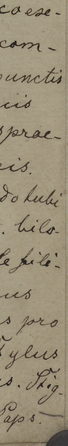 coese-
com-
punctis
ciis
sprae-
cis.
do tubi
. bilo-
le pili-
us
s pro
Tylus
s. Stig-
Paps. -